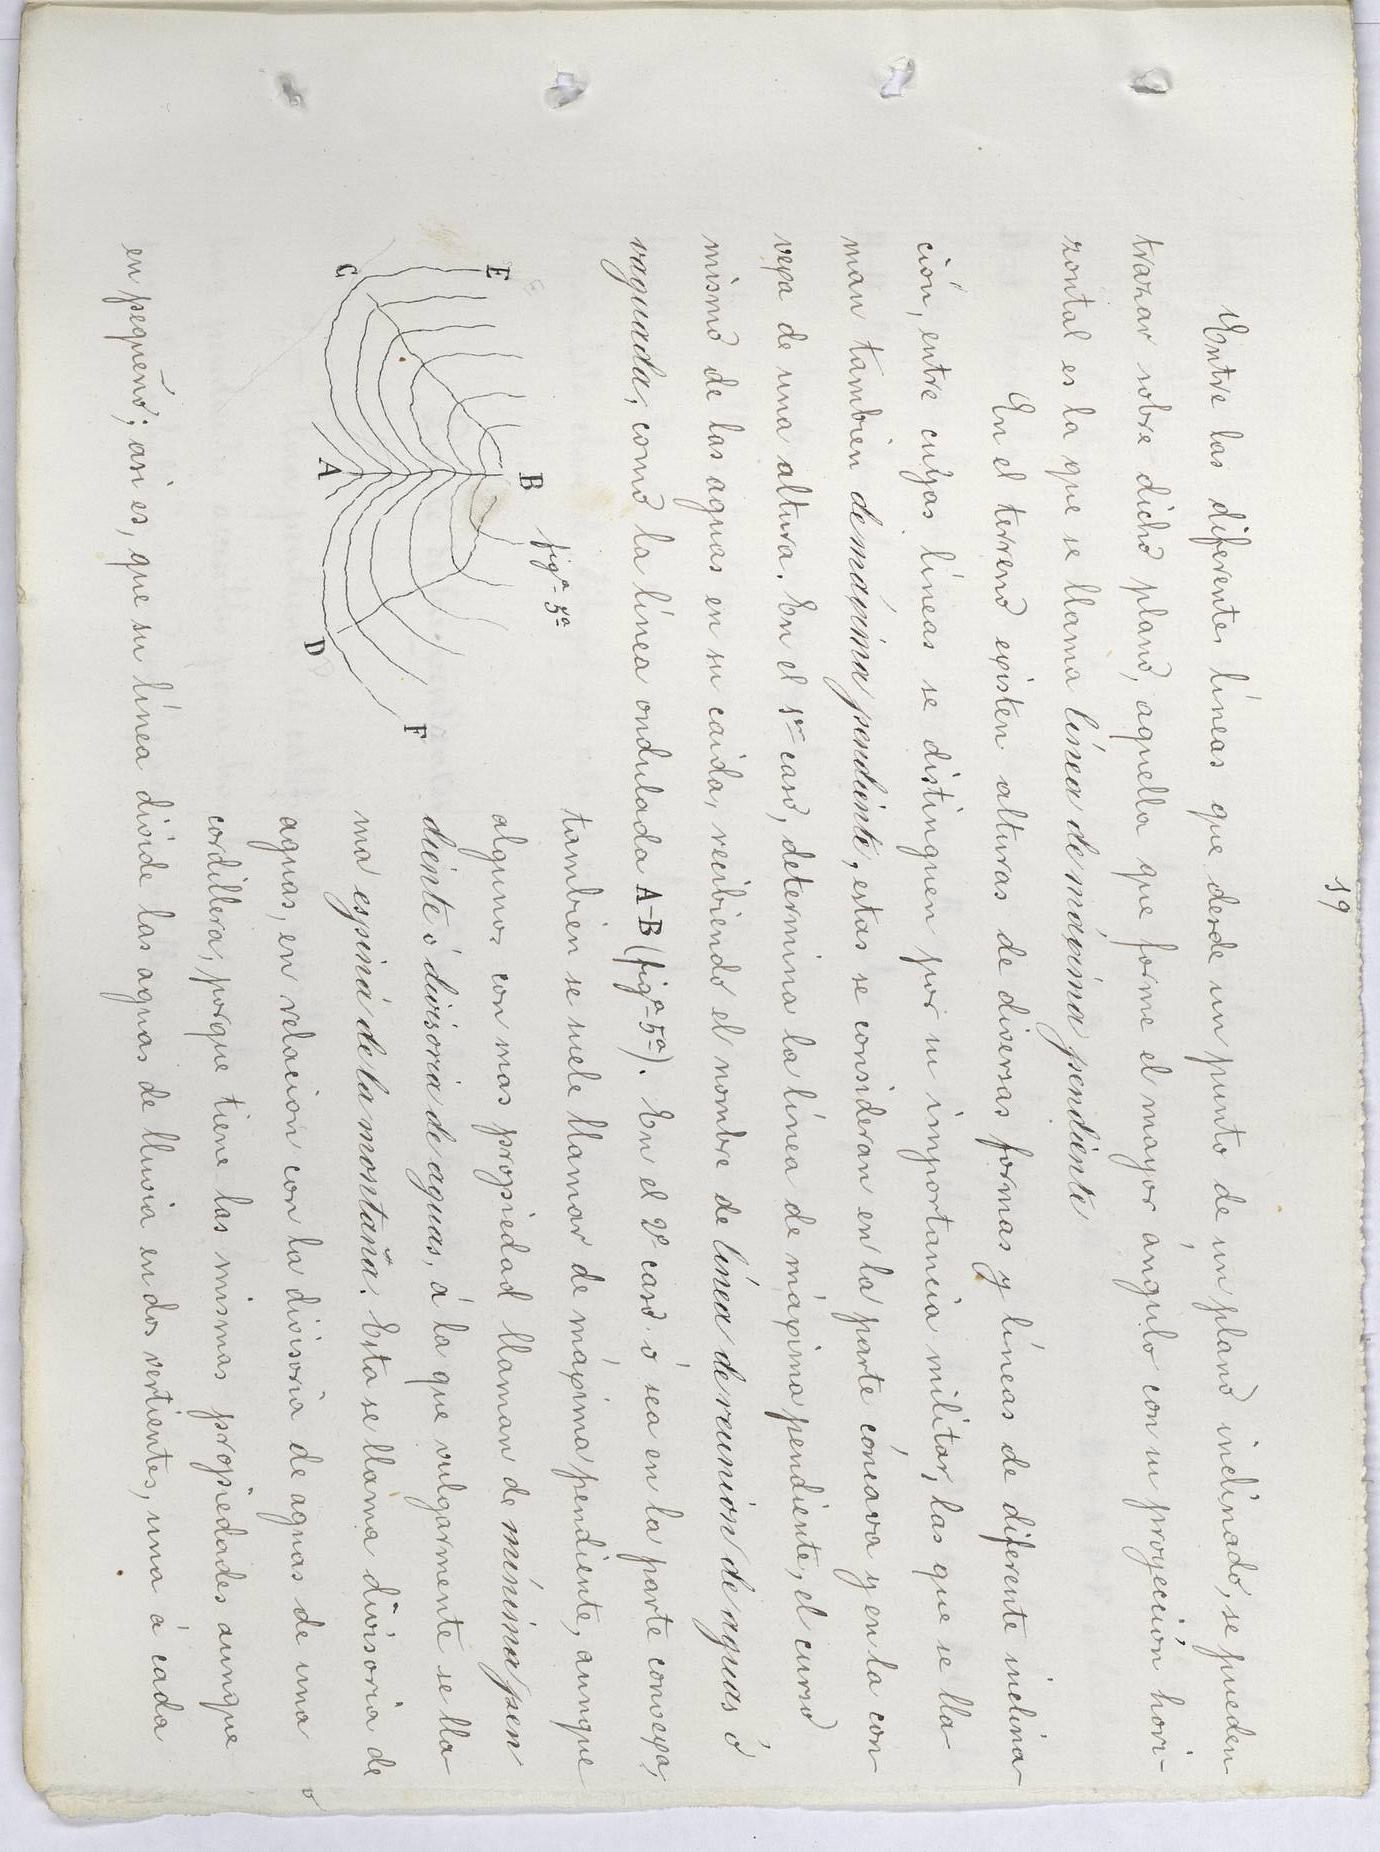 19
Entre las diferentes líneas que desde un punto de un plano inclinado, se pueden
trazar sobre dicho plano, aquella que forme el mayor angulo con su proyección hori-
zontal es la que se llama línea de máxima pendiente
En el terreno existen alturas de diversas formas y líneas de diferente inclina-
ción, entre cuyas líneas se distinguen por su importancia militar, las que se lla-
man tambien de máxima pendiente, estas se consideran en la parte cóncava y en la con-
vexa de una altura. En el 1er caso, determina la línea de máxima pendiente, el curso
mismo de las aguas en su caida, recibiendo el nombre de línea de reunión de aguas ó
vaguada, como la línea ondulada A-B (figª 5ª). En el 2º caso ó sea en la parte convexa,
tambien se suele llamar de máxima pendiente, aunque
algunos con mas propiedad llaman de mínima pen
diente ó divisoria de aguas, á la que vulgarmente se lla-
ma espina de la montaña. Esta se llama divisoria de
aguas, en relacion con la divisoria de aguas de una
cordillera, porque tiene las mismas propiedades aunque
en pequeño; asi es, que su línea divide las aguas de lluvia en dos vertientes, una á cada
figª 5ª
E
B
C
A
D
F